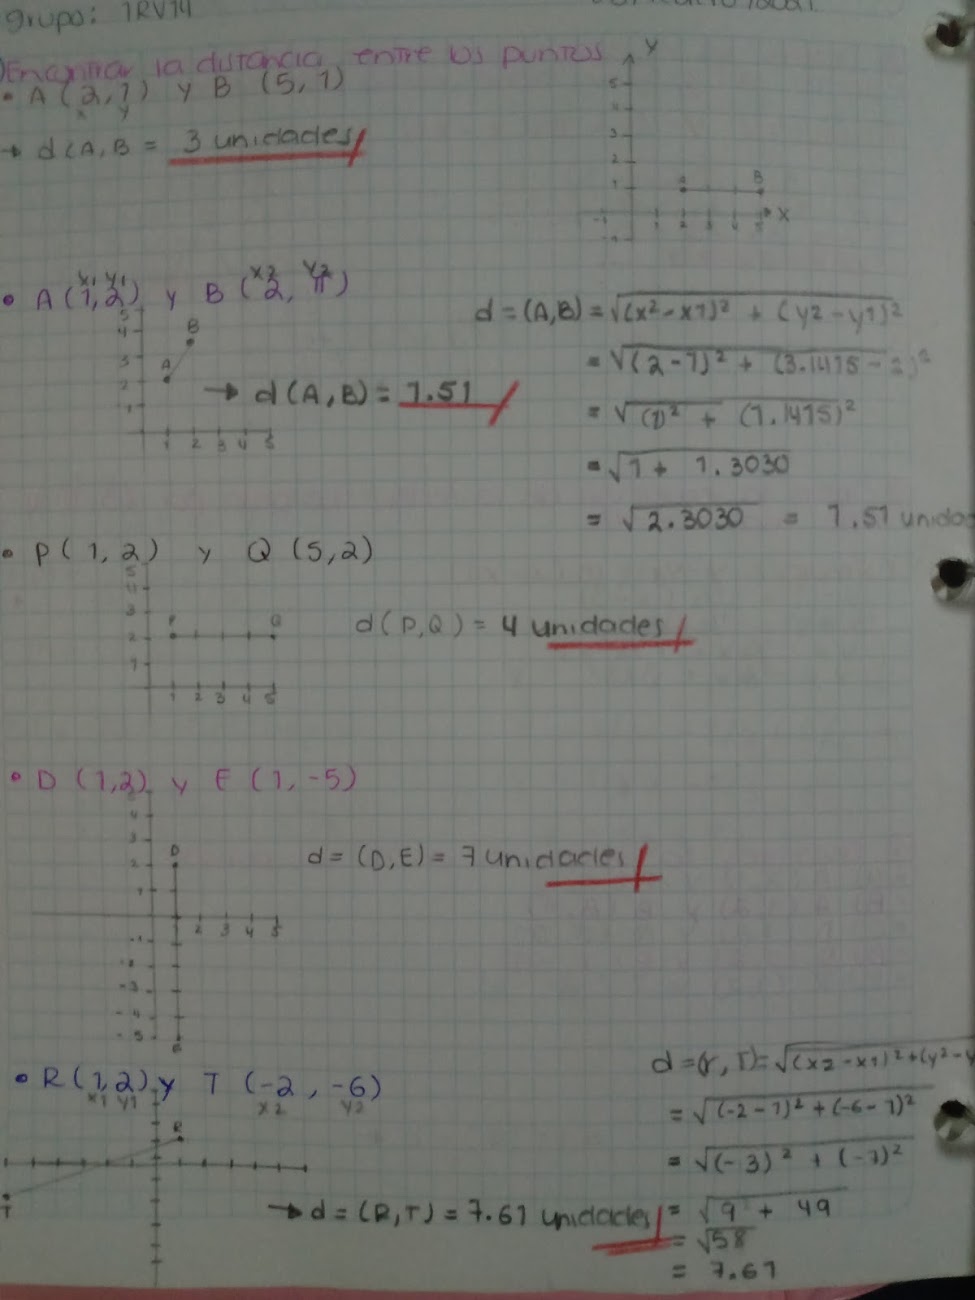 grupo: 1RV14
Encontrar la distancia entre los puntos
• A (2,1) y B (5,1)
x y
→ d(A,B = 3 unidades
Y
5
4
3
2
1
A B
-1 1 2 3 4 5 X
-1
x1 y1 x2 y2
• A(1,2) y B (2, π)
5
4
3
2
1
B
A
1 2 3 4 5
→ d(A,B) = 1.51
d=(A,B) = √(x2-x1)² + (y2-y1)²
= √(2-1)² + (3.1415-2)²
= √(1)² + (1.1415)²
= √1+ 1.3030
= √2.3030 = 1.51 unidad
• P(1,2) y Q (5,2)
5
4
3
2
1
P Q
1 2 3 4 5
d(P,Q) = 4 unidades
• D (1,2) y E (1,-5)
4
3
2
1
D
2 3 4 5
-1
-2
-3
-4
-5
E
d=(D,E) = 7 unidades
• R(1,2) y T (-2,-6)
x1 y1 x2 y2
R
T
→ d=(R,T) = 7.61 unidades
d=(r,T)=√(x2-x1)²+(y2-y
= √(-2-1)²+(-6-1)²
= √(-3)² + (-7)²
= √9 + 49
= √58
= 7.61